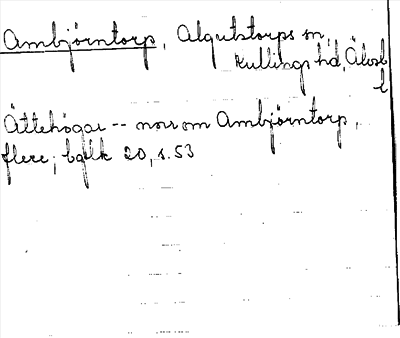 Ambjörntorp, Algutstorps sn,
Kullings hd, Älvsb
l
Ättehögar -- norr om Ambjörntorp,
flere; bgvk 20, s. 53